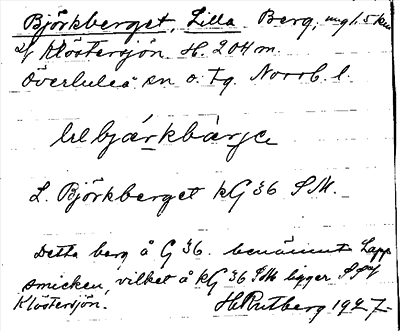 Björkberget, Lilla. Berg, 1.5 km
Klöstersjön. H. 204 m.
Överluleå sn o. tg. Norrb. l.
lılbjárkbàrje
L. Björkberget kG 36 SM.
Detta berg å G 36. benämnt Lapp
smicken, vilket å kG 36 SM ligger
Klöstersjön. H Rutberg 1927